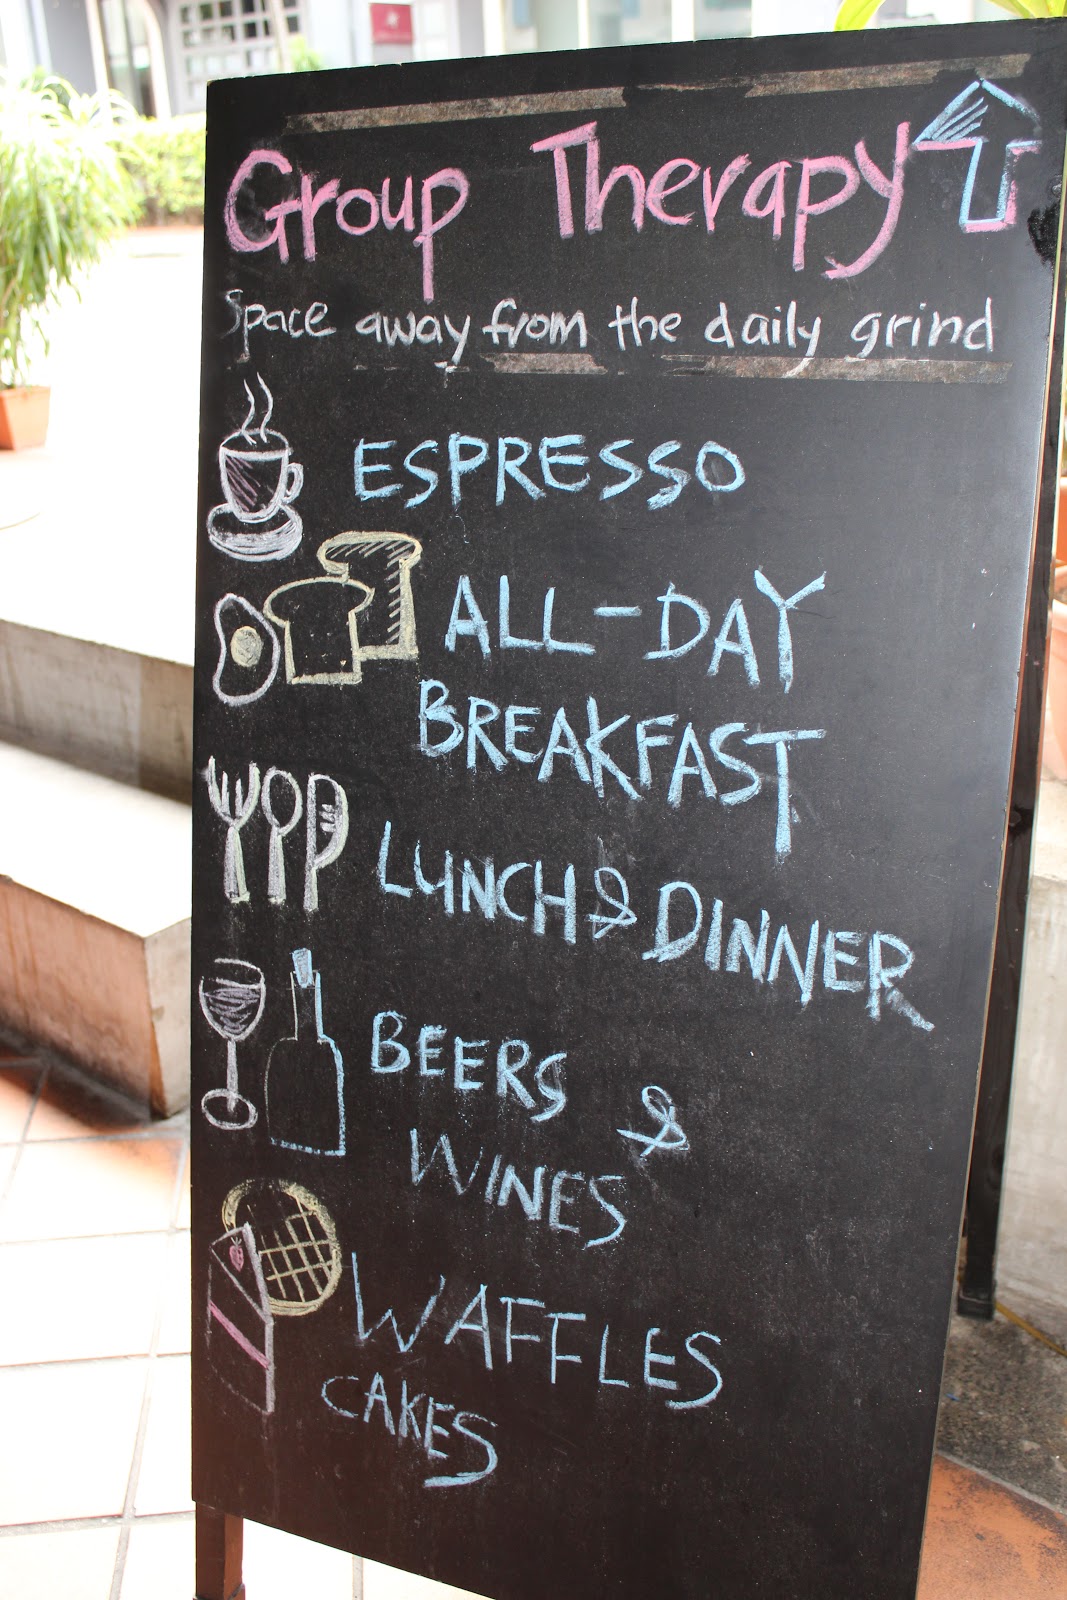 Group Therapy
Space away from the daily grind
ESPRESSO
ALL-DAY
BREAKFAST
LUNCH & DINNER
BEERS &
WINES
WAFFLES
CAKES